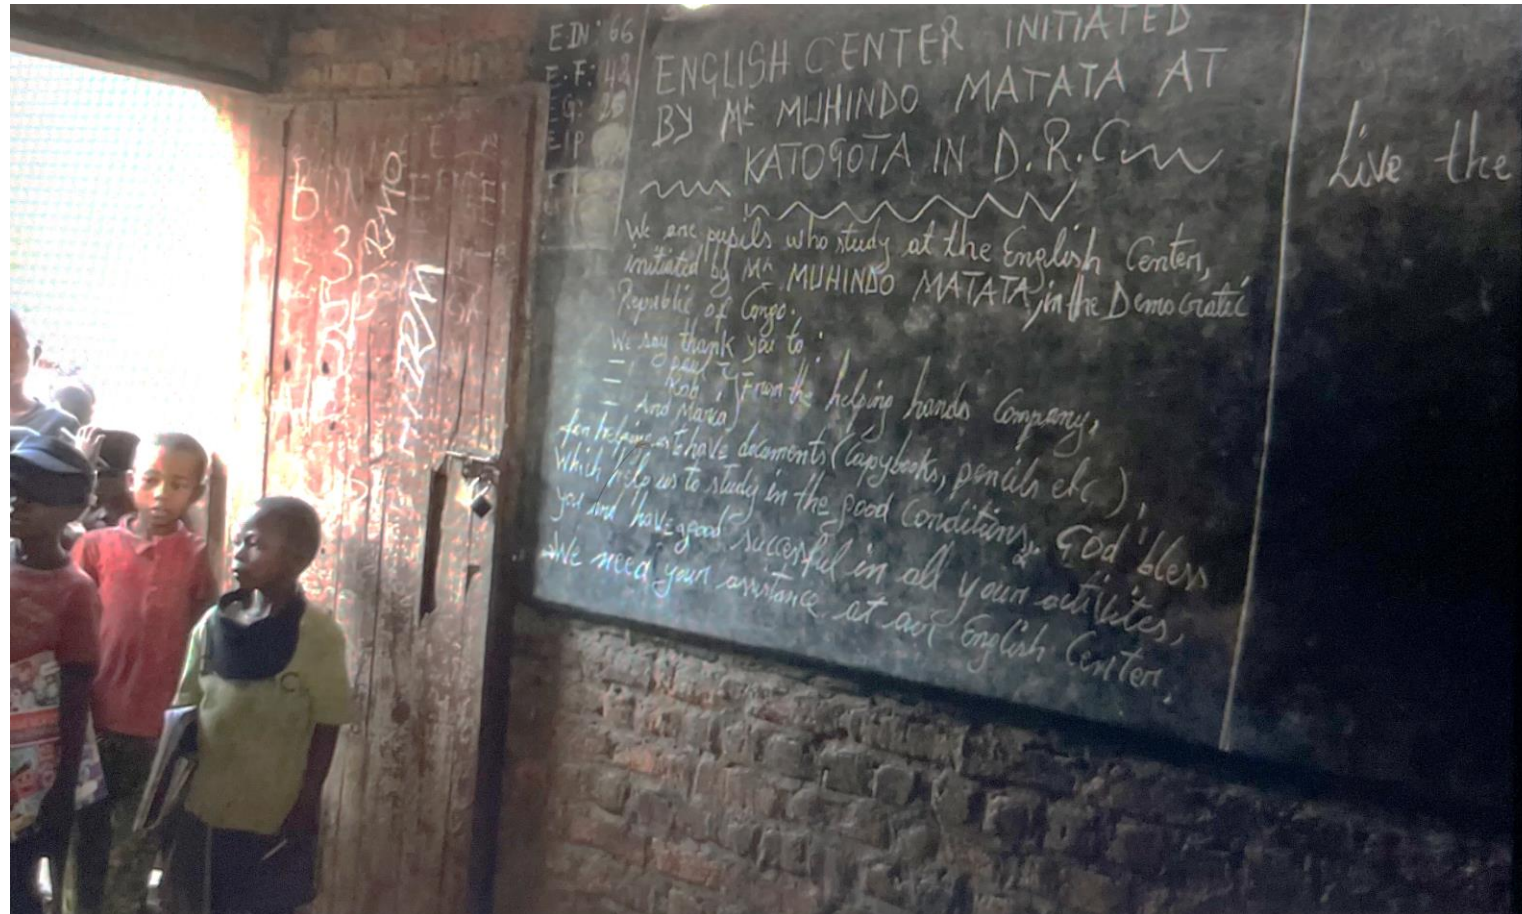 E.DN: 66
E.F: 42
E.G: 28
E.IP
ENGLISH CENTER INITIATED
BY Mr MUHINDO MATATA AT
KATOGOTA IN D.R.C
We are pupils who study at the English Center,
initiated by Mr MUHINDO MATATA, in the Democratic
Republic of Congo.
We say thank you to:
- Paul
- Rob, From the helping hands Company,
- And Maria
for helping us to have documents (Copybooks, pencils etc.),
Which help us to study in the good Conditions. God bless
you and have good successful in all your activites,
We need your assistance at our English Center,
Live the